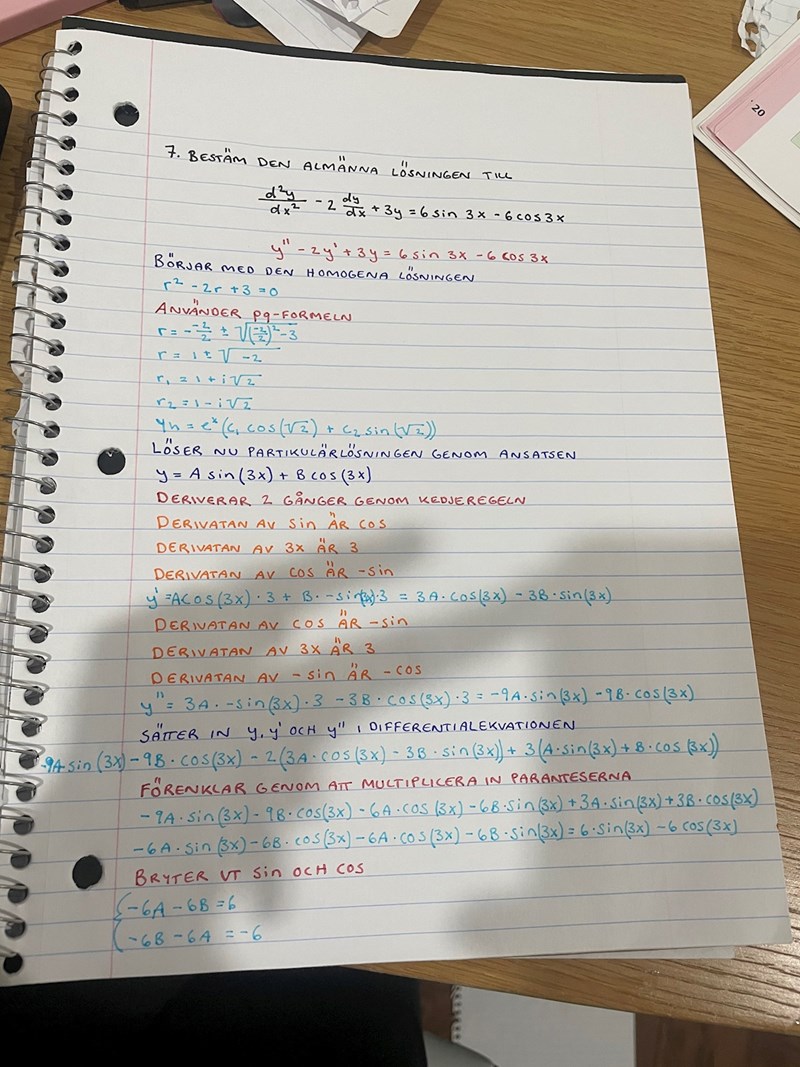 20
7. BESTÄM DEN ALMÄNNA LÖSNINGEN TILL
d²y/dx² - 2 dy/dx + 3y = 6 sin 3x - 6 cos 3x
y'' - 2y' + 3y = 6 sin 3x - 6 cos 3x
BÖRJAR MED DEN HOMOGENA LÖSNINGEN
r² - 2r + 3 = 0
ANVÄNDER pq-FORMELN
r = - -2/2 ± √((-2/2)² - 3)
r = 1 ± √-2
r₁ = 1 + i√2
r₂ = 1 - i√2
yh = eˣ(C₁ cos(√2) + C₂ sin(√2))
LÖSER NU PARTIKULÄRLÖSNINGEN GENOM ANSATSEN
y = A sin(3x) + B cos(3x)
DERIVERAR 2 GÅNGER GENOM KEDJEREGELN
DERIVATAN AV sin ÄR cos
DERIVATAN AV 3x ÄR 3
DERIVATAN AV cos ÄR -sin
y' = A cos(3x) · 3 + B · -sin(3x) · 3 = 3A · cos(3x) - 3B · sin(3x)
DERIVATAN AV cos ÄR -sin
DERIVATAN AV 3x ÄR 3
DERIVATAN AV -sin ÄR -cos
y'' = 3A · -sin(3x) · 3 - 3B · cos(3x) · 3 = -9A · sin(3x) - 9B · cos(3x)
SÄTTER IN y, y' OCH y'' I DIFFERENTIALEKVATIONEN
-9A sin(3x) - 9B · cos(3x) - 2(3A · cos(3x) - 3B · sin(3x)) + 3(A · sin(3x) + B · cos(3x))
FÖRENKLAR GENOM ATT MULTIPLICERA IN PARANTESERNA
-9A · sin(3x) - 9B · cos(3x) - 6A · cos(3x) - 6B · sin(3x) + 3A · sin(3x) + 3B · cos(3x)
-6A · sin(3x) - 6B · cos(3x) - 6A · cos(3x) - 6B · sin(3x) = 6 · sin(3x) - 6 cos(3x)
BRYTER UT sin OCH cos
{-6A - 6B = 6
{-6B - 6A = -6